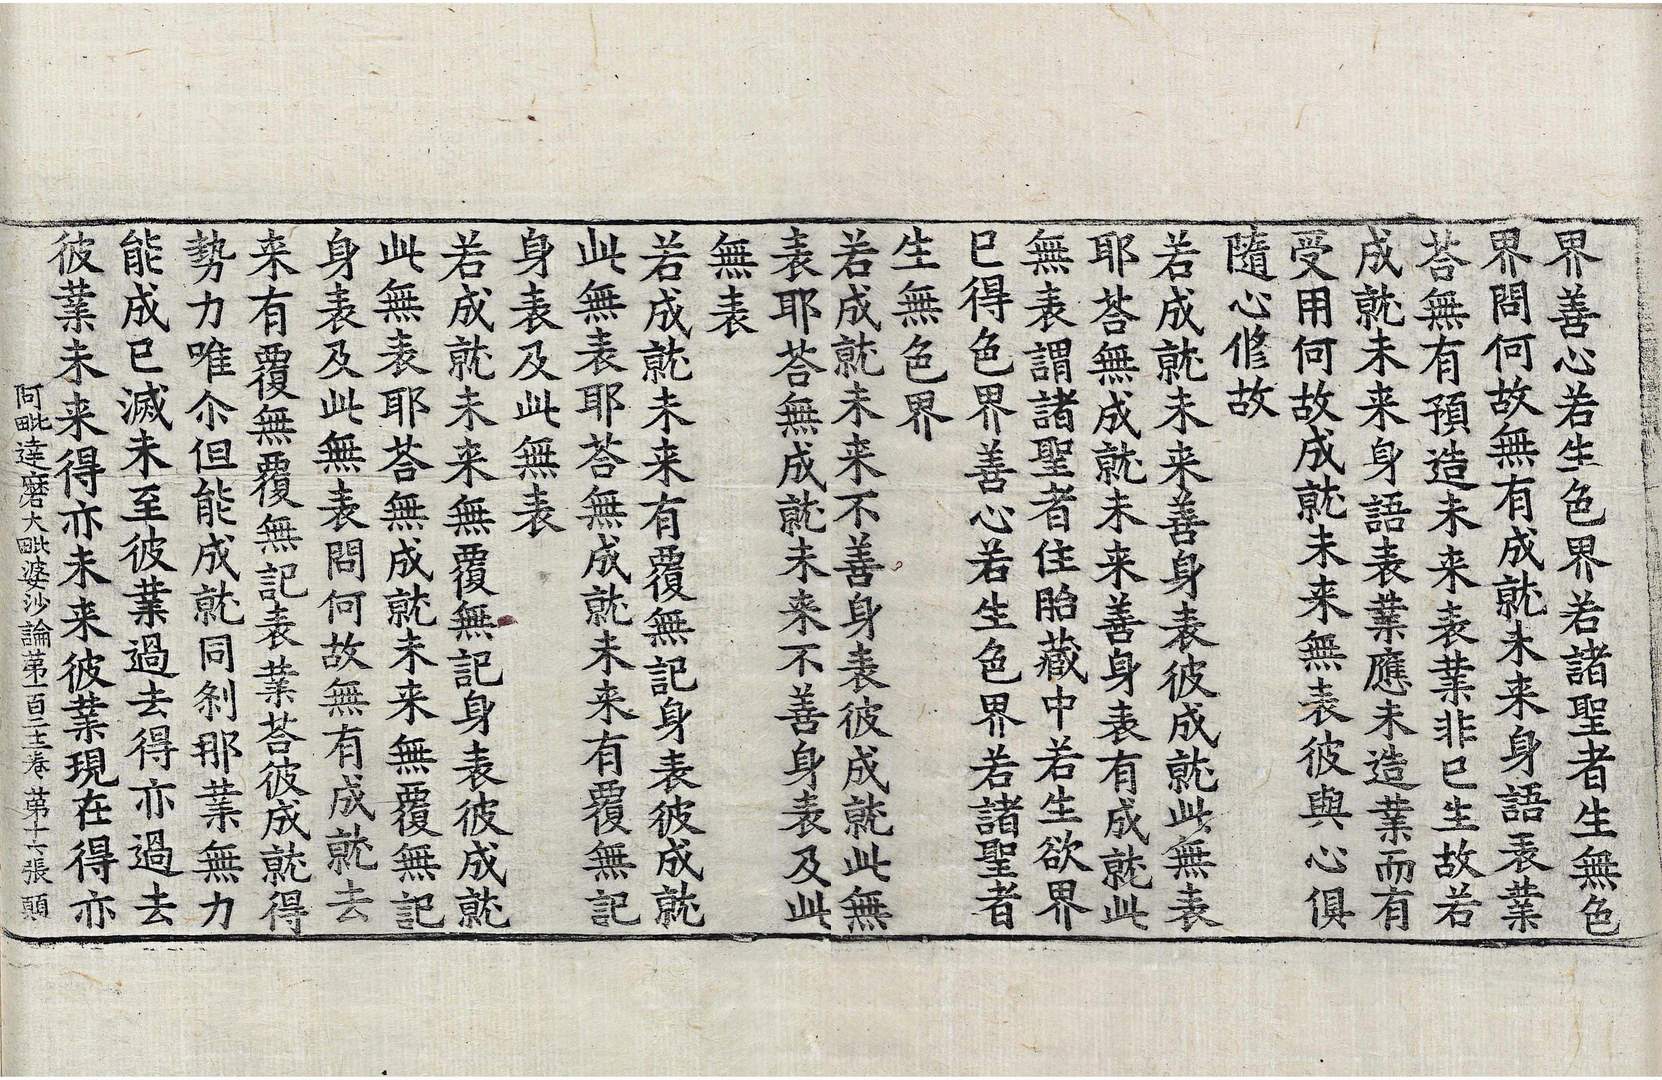 界善心若生色界若諸聖者生無色
界問何故無有成就未来身語表業
荅無有預造未来表業非已生故若
成就未来身語表業應未造業而有
受用何故成就未来無表彼與心俱
隨心修故
若成就未来善身表彼成就此無表
耶荅無成就未来善身表有成就此
無表謂諸聖者住胎藏中若生欲界
已得色界善心若生色界若諸聖者
生無色界
若成就未来不善身表彼成就此無
表耶荅無成就未来不善身表及此
無表
若成就未来有覆無記身表彼成就
此無表耶荅無成就未来有覆無記
身表及此無表
若成就未来無覆無記身表彼成就
此無表耶荅無成就未来無覆無記
身表及此無表問何故無有成就去
来有覆無覆無記表業荅彼成就得
勢力唯尒但能成就同刹那業無力
能成已滅未至彼業過去得亦過去
彼業未来得亦未来彼業現在得亦
阿毗達磨大毗婆沙論苐一百二十二卷 苐十六張 顛